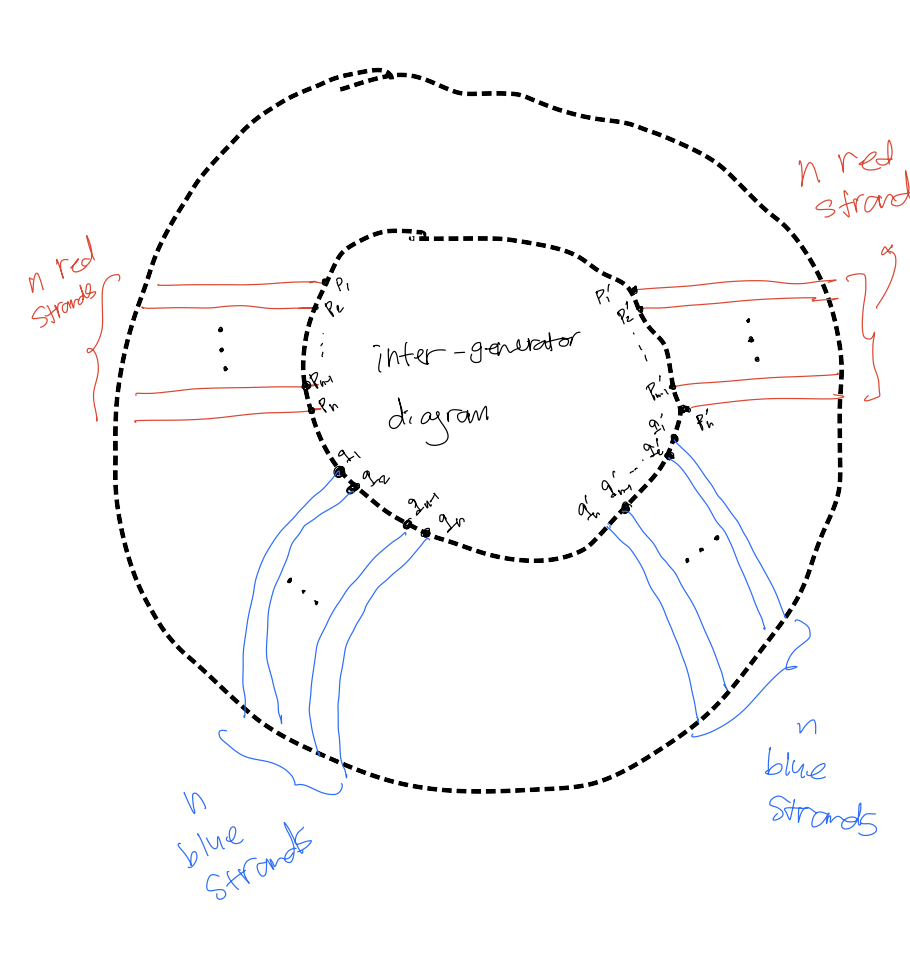 n red
strand
n red
strands
P₁
P₂
Pₙ₋₁
Pₙ
P₁'
P₂'
Pₙ₋₁'
Pₙ'
inter-generator
diagram
q₁
q₂
qₙ₋₁
qₙ
q₁'
q₂'
qₙ₋₁'
qₙ'
n
blue
strands
n
blue
strands